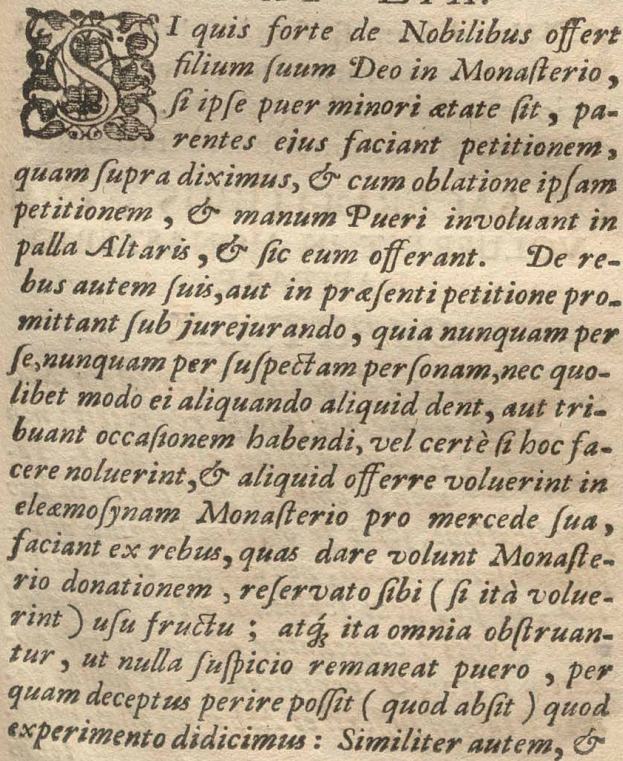 SI quis forte de Nobilibus offert
filium ſuum Deo in Monaſterio,
ſi ipſe puer minori ætate ſit, pa-
rentes ejus faciant petitionem,
quam ſupra diximus, & cum oblatione ipſam
petitionem, & manum Pueri involuant in
palla Altaris, & ſic eum offerant. De re-
bus autem ſuis, aut in præſenti petitione pro-
mittant ſub jurejurando, quia nunquam per
ſe, nunquam per ſuſpectam perſonam, nec quo-
libet modò ei aliquando aliquid dent, aut tri-
buant occaſionem habendi, vel certè ſi hoc fa-
cere noluerint, & aliquid offerre voluerint in
eleæmoſynam Monaſterio pro mercede ſua,
faciant ex rebus, quas dare volunt Monaſte-
rio donationem, reſervato ſibi (ſi ità volue-
rint) uſu fructu; atq́; ita omnia obſtruan-
tur, ut nulla ſuſpicio remaneat puero, per
quam deceptus perire poſſit (quod abſit) quod
experimento didicimus: Similiter autem, &